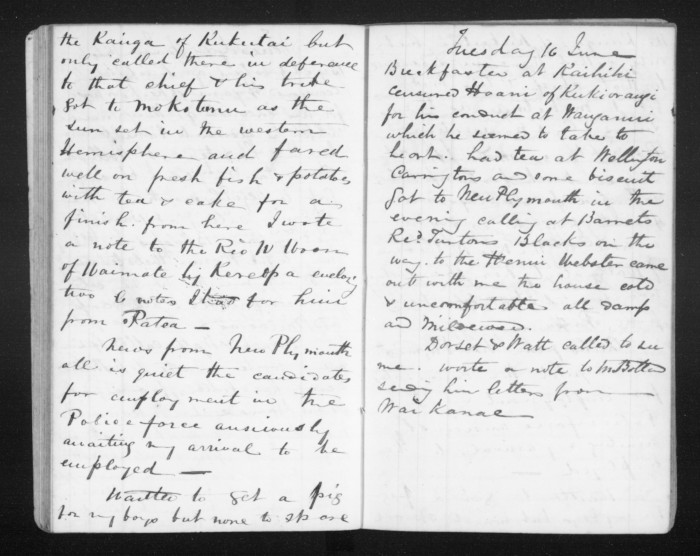 the Kainga of Kukutai but
only called there in deference
to that chief & his tribe
Got to Mokotunu as the
sun set in the western
Hemisphere and fared
well on fresh fish & potatoes
with tea & cake for a
finish. from here I wrote
a note to the Rev W
of Waimate by enclosg
two notes I had for him
from Patea —
News from New Plymouth
all is quiet the candidates
for employment in the
Police force anxiously
awaiting my arrival to be
employed —
Wanted to get a pig
for my boys but none to spare
Tuesday 16 June
Buckfasted at Kaihihi
censured Hoani of Kukiorangi
for his conduct at
which he seemed to take to
heart. had tea at Wellington
Carringtons and some biscuit
Got to New Plymouth in the
evening calling at Barretts
Revd Turtons Blacks on the
way. to the Henui Webster came
out with me the house cold
& uncomfortable all damp
and Mildewed.
Dorset & Watt called to see
me. wrote a note to
sendg him letters from
Wai Kanae